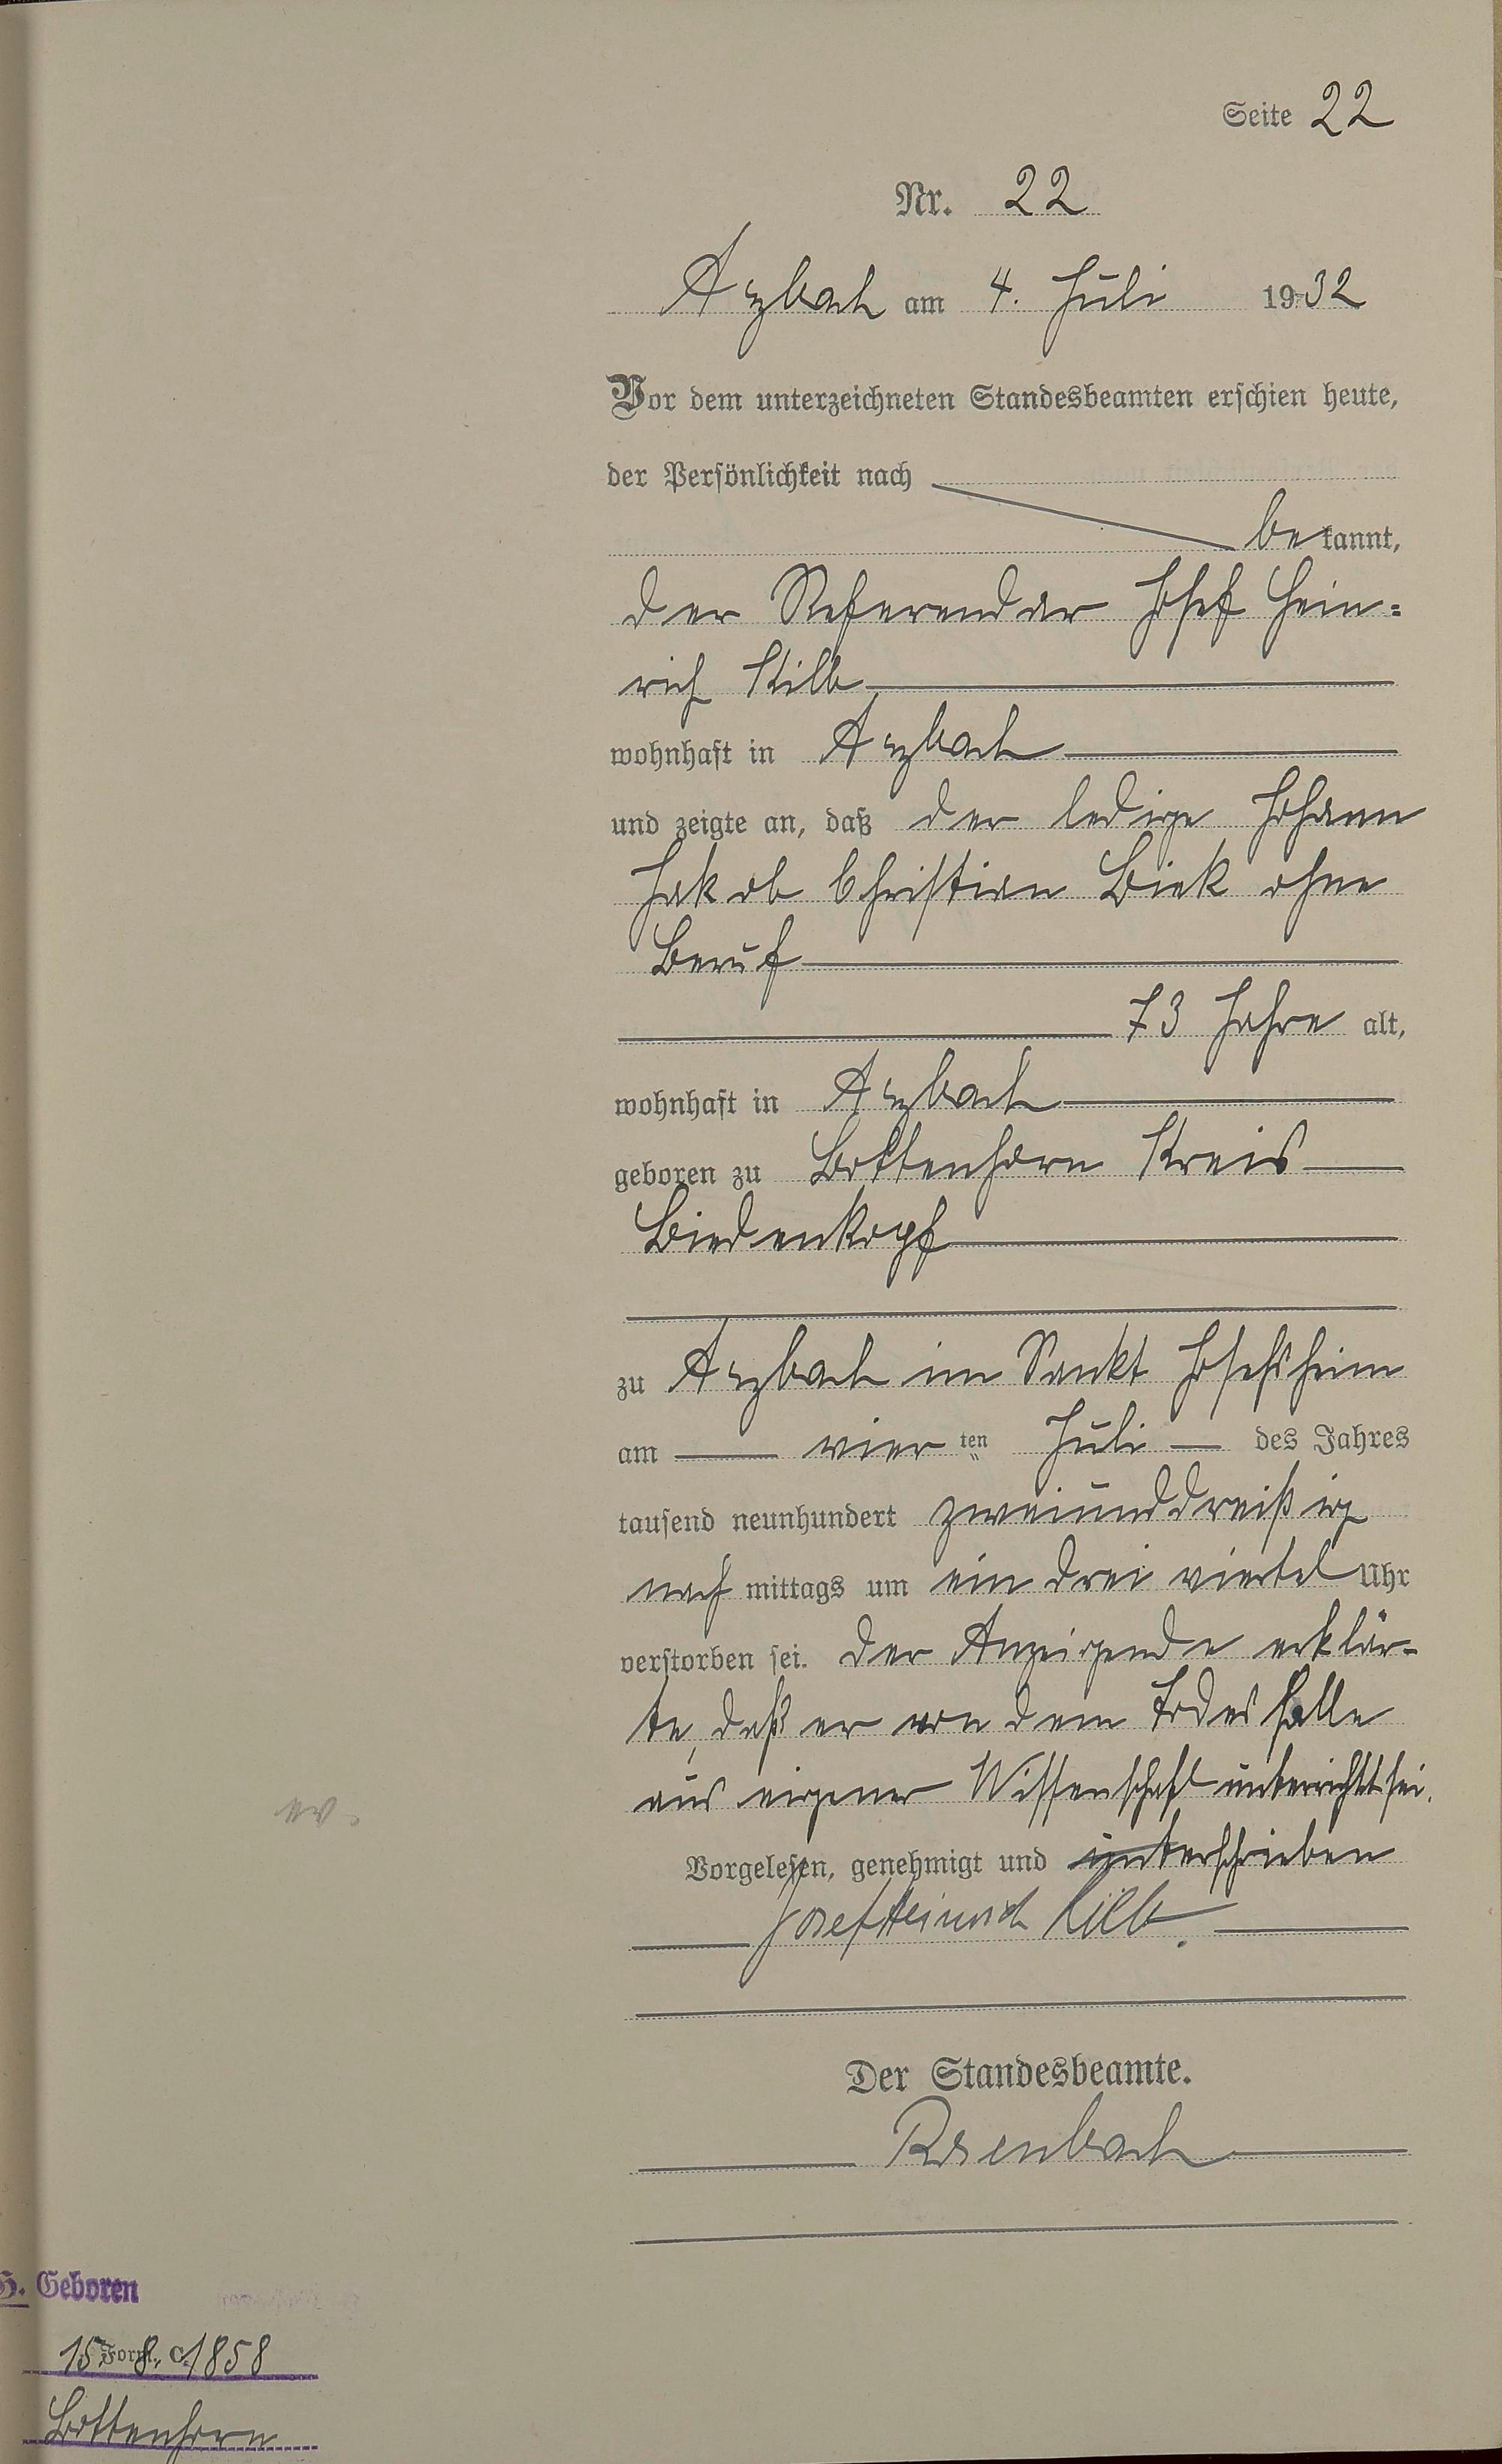 Seite 22
Nr. 22
Arzbach am 4. Juli 1932
Vor dem unterzeichneten Standesbeamten erschien heute,
der Persönlichkeit nach
bekannt,
der Referendar Josef Hein=
rich Kilb
wohnhaft in Arzbach
und zeigte an, daß der ledige Johann
Jakob Christian Biek ohne
Beruf
73 Jahre alt,
wohnhaft in Arzbach
geboren zu Bottenhorn Kreis
Biedenkopf
zu Arzbach im Sankt Josefsheim
am vier ten Juli des Jahres
tausend neunhundert zweiunddreißig
nach mittags um ein drei viertel Uhr
verstorben sei. Der Anzeigende erklär-
te, daß er von dem Todesfalle
aus eigener Wissenschaft unterrichtet sei.
ev.
Vorgelesen, genehmigt und unterschrieben
Josef Heinrich Kilb.
Der Standesbeamte.
Rosenbach
H. Geboren
15. 8. 1858
Form. C.
Bottenhorn